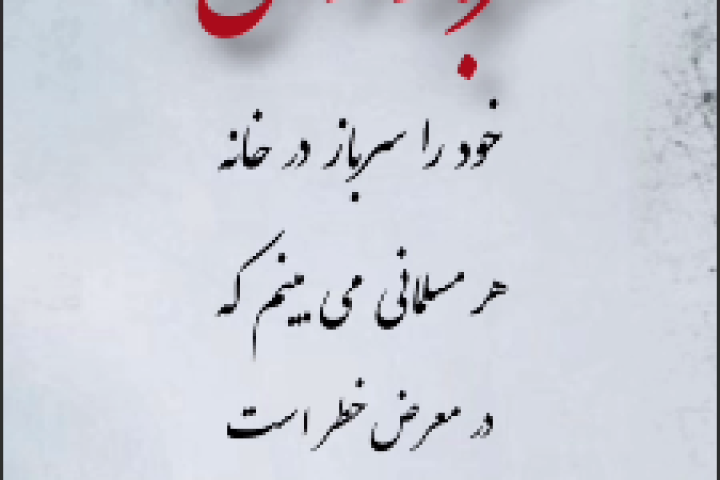 خود را سرباز در خانه
هر مسلمانی می بینم که
در معرض خطر است